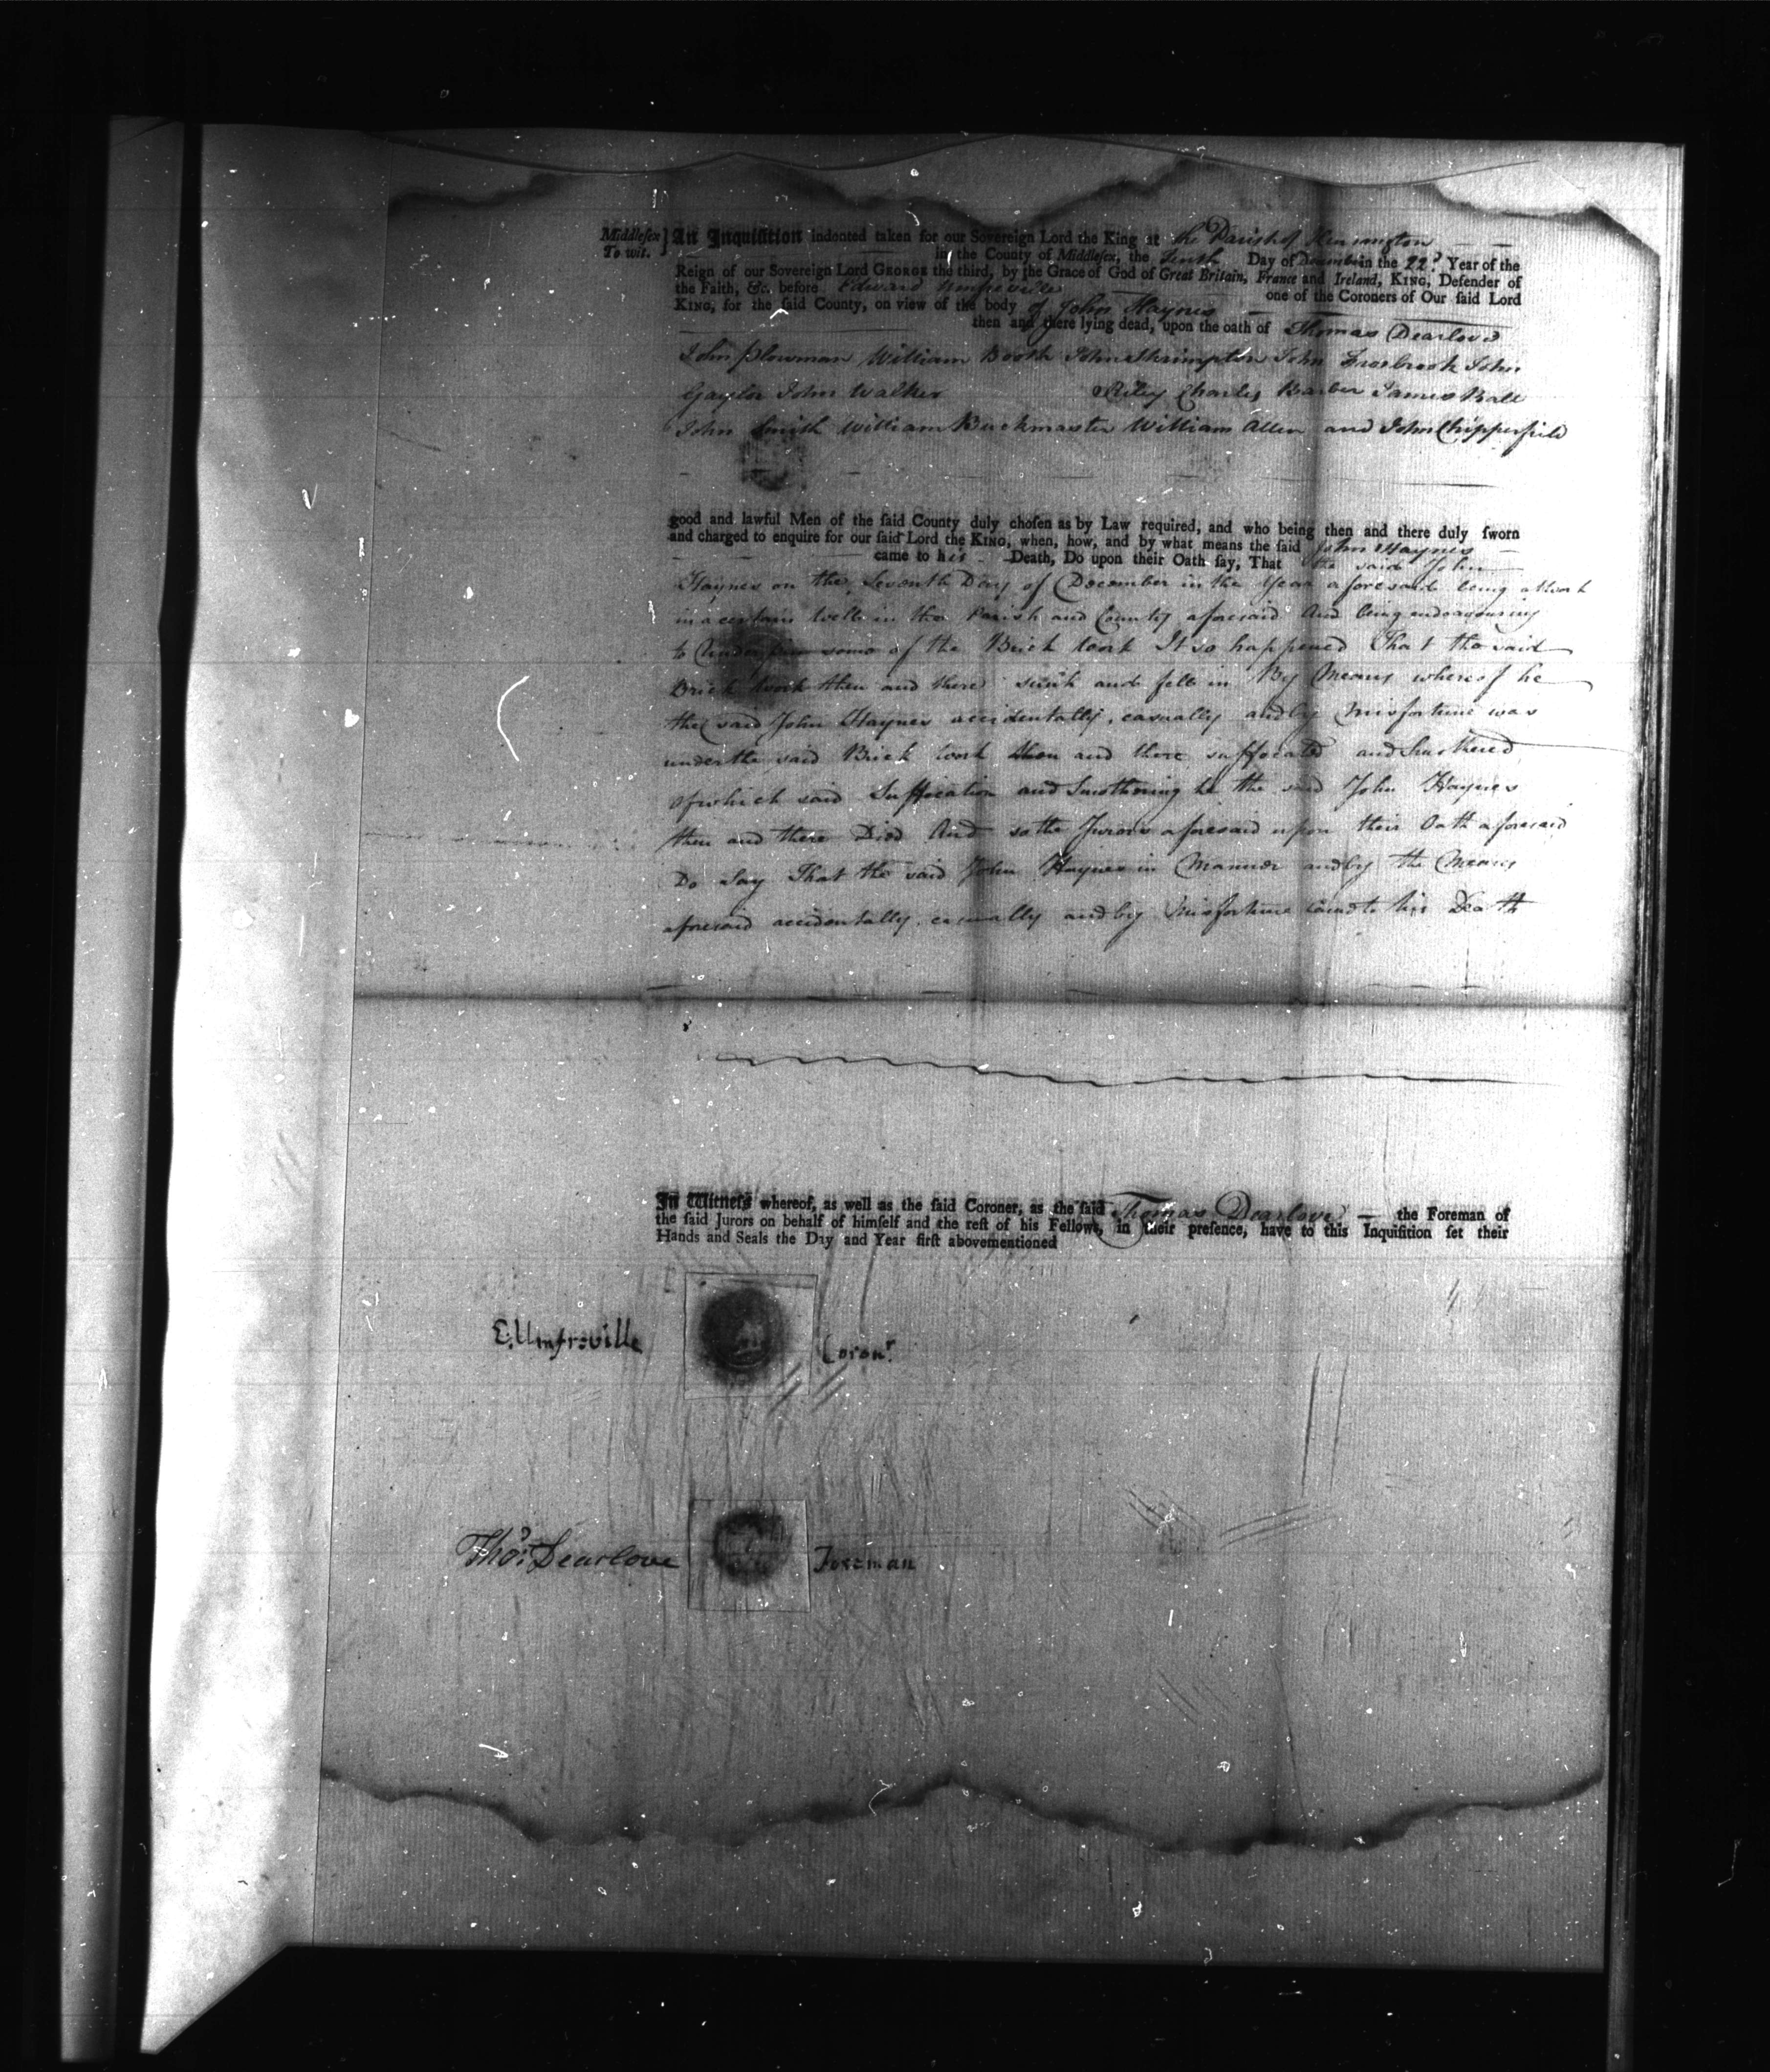 Middleſex } An Inquiſition indented taken for our Sovereign Lord the King at the Parish of Kensington
To wit. in the County of Middleſex, the Tenth Day of December in the 22d. Year of the
Reign of our Sovereign Lord GEORGE the third, by the Grace of God of Great Britain, France and Ireland, KING, Defender of
the Faith, &c. before Edward Umfreville one of the Coroners of Our ſaid Lord
KING, for the ſaid County, on view of the body of John Haynes
then and there lying dead, upon the oath of Thomas Dearlove
John Plowman William Booth John Shrimpton John John
Gaylor John Walker Riley Charles Barber James Ball
John Smith William Buckmaster William Allen and John Chipperfield
good and lawful Men of the ſaid County duly choſen as by Law required, and who being then and there duly ſworn
and charged to enquire for our ſaid Lord the KING, when, how, and by what means the ſaid John Haynes
came to his Death, Do upon their Oath ſay, That the said John
Haynes on the Seventh Day of December in the Year aforesaid being at work
in a certain Well in the Parish and County aforesaid And being endeavouring
to some of the Brick Work It so happened That the said
Brick Work then and there sunk and fell in By Means whereof he
the said John Haynes accidentally, casually and by Misfortune was
under the said Brick Work then and there suffocated and Smothered
of which said Suffocation and Smothering he the said John Haynes
then and there Died And so the Jurors aforesaid upon their Oath aforesaid
Do Say That the said John Haynes in Manner and by the Means
aforesaid accidentally, casually and by Misfortune came to his Death
In Witneſs whereof, as well as the ſaid Coroner, as the ſaid Thomas Dearlove the Foreman of
the ſaid Jurors on behalf of himſelf and the reſt of his Fellows, in their preſence, have to this Inquiſition ſet their
Hands and Seals the Day and Year firſt abovementioned
E: Umfreville Coronr.
Thos: Dearlove Foreman